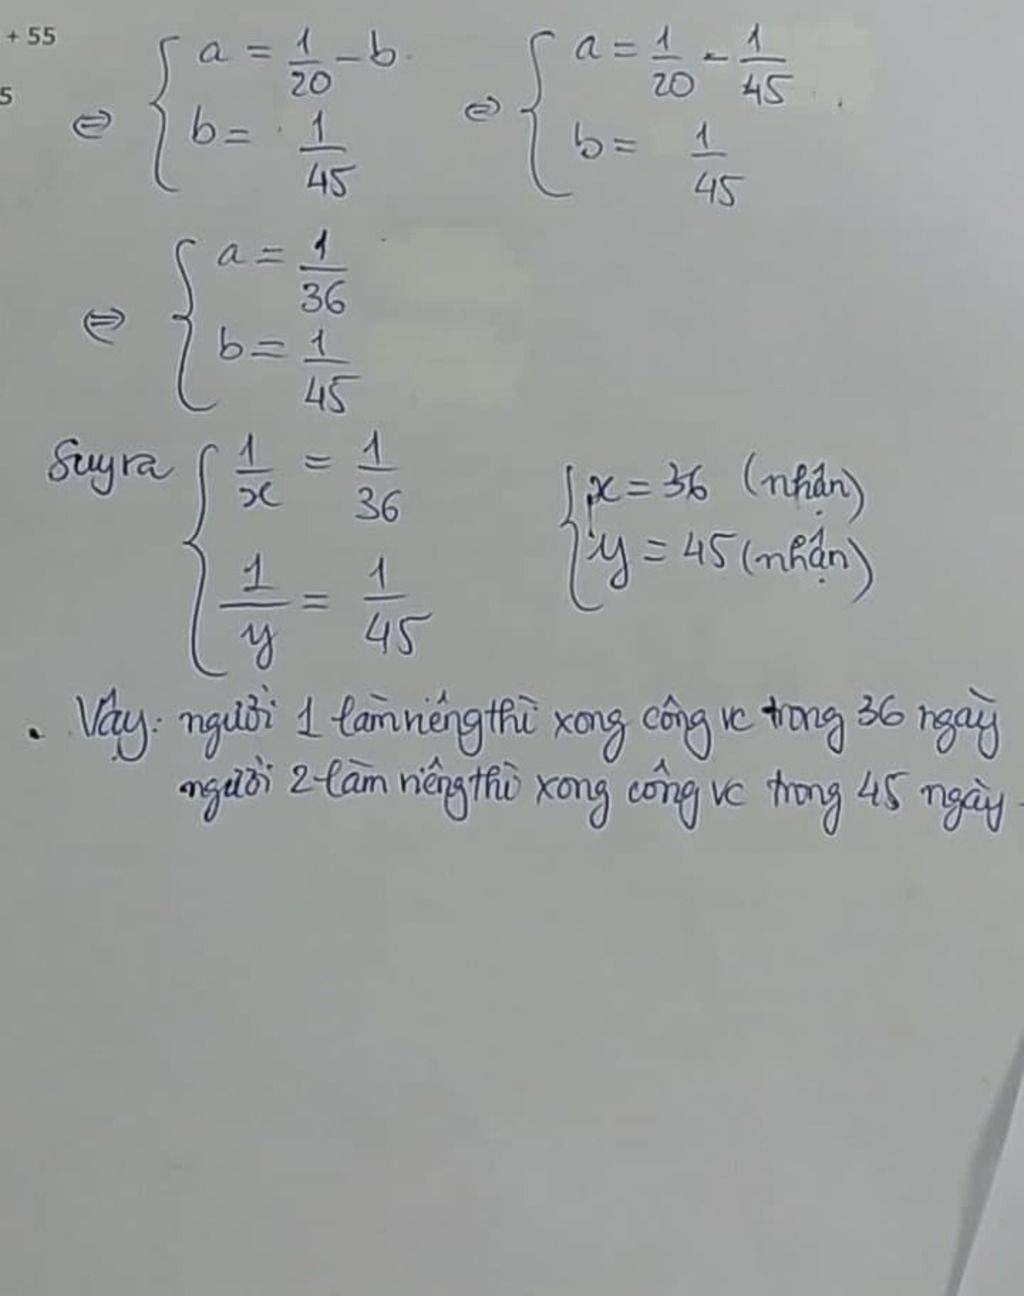 + 55
5
⇔ { a = 1/20 - b
b = 1/45
⇔ { a = 1/20 - 1/45
b = 1/45
⇔ { a = 1/36
b = 1/45
Suy ra { 1/x = 1/36
1/y = 1/45
{ x = 36 (nhận)
y = 45 (nhận)
. Vậy: người 1 làm riêng thì xong công vc trong 36 ngày
người 2 làm riêng thì xong công vc trong 45 ngày.